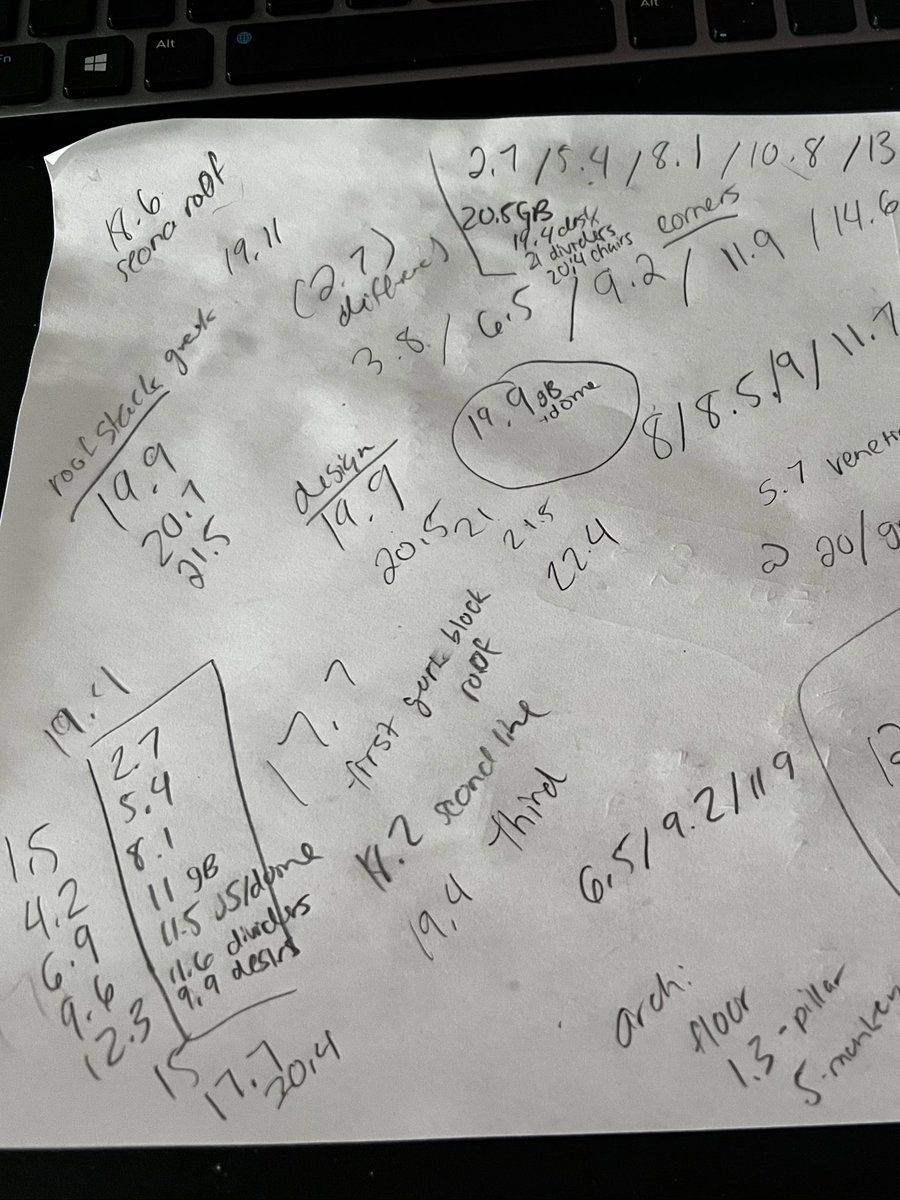 Fn
Alt
Alt
18.6
19.11
(2.7)
2.7 / 5.4 / 8.1 / 10.8 / 13
20.5 GB
19.4 desk
21 dividers
20.4 chairs
corners
3.8 / 6.5 / 9.2 / 11.9 / 14.6
roof stack
19.9
20.7
21.5
design
19.9
20.5 21
21.5
22.4
19.9 gB
+dome
8/8.5/9/11.7
5.7
20/
19.4
2.7
5.4
8.1
11 gB
11.5 US/dome
11.6 dividers
9.9
1.5
4.2
6.9
9.6
12.3
15
17.7
20.4
17.7
first block
roof
18.2 second line
19.4 third
6.5/9.2/11.9
12
arch:
floor
1.3 - pillar